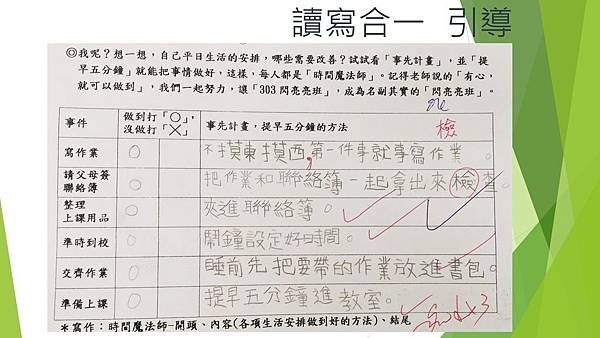 讀寫合一 引導
◎我呢？想一想，自己平日生活的安排，哪些需要改善？試試看「事先計畫」，並「提
早五分鐘」就能把事情做好，這樣，每人都是「時間魔法師」。記得老師說的「有心，
就可以做到」，我們一起努力，讓「303閃亮亮班」，成為名副其實的「閃亮亮班」。
檢
事件 做到打「○」，沒做打「×」 事先計畫，提早五分鐘的方法
寫作業 ○ 不摸東摸西，第一件事就事寫作業。
請父母簽聯絡簿 ○ 把作業和聯絡簿一起拿出來檢查。
整理上課用品 ○ 夾進聯絡簿。
準時到校 ○ 鬧鐘設定好時間。
交齊作業 ○ 睡前先把要帶的作業放進書包。
準備上課 ○ 提早五分鐘進教室。
＊寫作：時間魔法師-開頭、內容(各項生活安排做到好的方法)、結尾